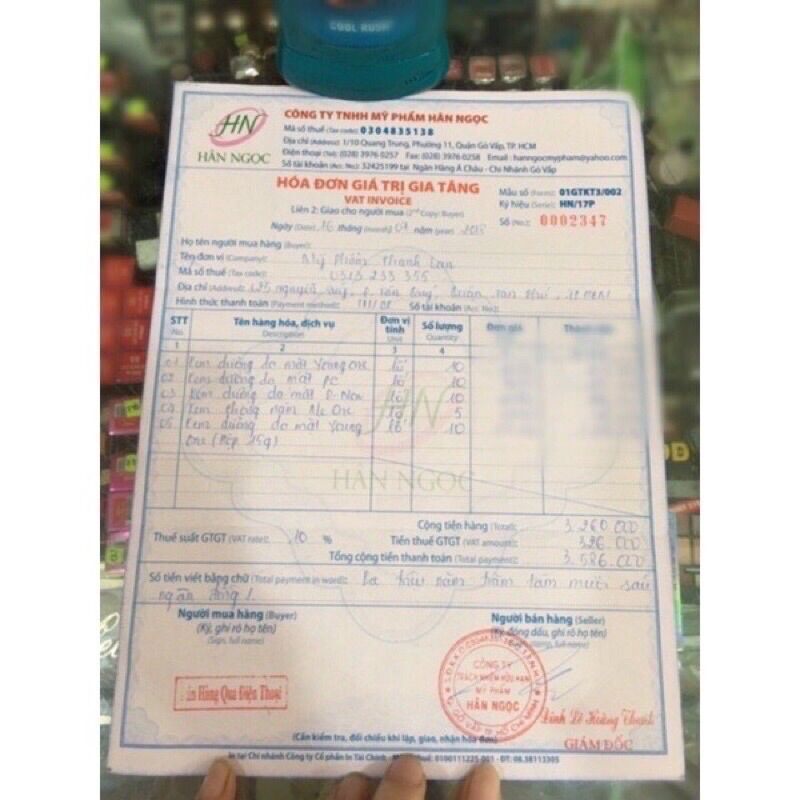 COOL RUSH
HN
HÂN NGỌC
CÔNG TY TNHH MỸ PHẨM HÂN NGỌC
Mã số thuế (Tax code): 0304835138
Địa chỉ (Address): 1/10 Quang Trung, Phường 11, Quận Gò Vấp, TP. HCM
Điện thoại (Tel): (028) 3976 0257 Fax: (028) 3976 0258 Email: hanngocmypham@yahoo.com
Số tài khoản (Acc. No.): 32425199 tại Ngân Hàng Á Châu - Chi Nhánh Gò Vấp
HÓA ĐƠN GIÁ TRỊ GIA TĂNG
VAT INVOICE
Liên 2: Giao cho người mua (2nd Copy: Buyer)
Ngày (Date) 16 tháng (month) 07 năm (year) 2018
Mẫu số (Form): 01GTKT3/002
Ký hiệu (Serial): HN/17P
Số (No.): 0002347
Họ tên người mua hàng (Buyer):
Tên đơn vị (Company): Mỹ Phẩm Thanh Lan
Mã số thuế (Tax code): 0313 233 355
Địa chỉ (Address): Quý, P. Tân Quý, Quận Tân Phú, TP HCM
Hình thức thanh toán (Payment method): TM/CK Số tài khoản (Acc. No.):
STT Tên hàng hóa, dịch vụ Đơn vị tính Số lượng
No. Description Unit Quantity
1 2 3 4
01 Kem dưỡng da mặt Young One lố 10
02 Kem dưỡng da mặt lố 10
03 Kem dưỡng da mặt lố 10
04 Kem One lố 5
05 Kem dưỡng da mặt Young lố 10
One (Hộp 25g)
HN
HÂN NGỌC
Cộng tiền hàng (Total): 3.260.000
Thuế suất GTGT (VAT rate): 10 % Tiền thuế GTGT (VAT amount): 326.000
Tổng cộng tiền thanh toán (Total payment): 3.586.000
Số tiền viết bằng chữ (Total payment in words): Ba triệu năm trăm tám mươi sáu
ngàn đồng
Người mua hàng (Buyer) Người bán hàng (Seller)
(Ký, ghi rõ họ tên) (Ký, đóng dấu, ghi rõ họ tên)
(Sign, full name) stamp, full name)
CÔNG TY
TRÁCH NHIỆM HỮU HẠN
MỸ PHẨM
HÂN NGỌC
Q. GÒ VẤP TP. HỒ CHÍ MINH
Bán Hàng Qua Điện Thoại
Đinh Lê Hoàng Thanh
GIÁM ĐỐC
(Cần kiểm tra, đối chiếu khi lập, giao, nhận hóa đơn)
In tại Chi nhánh Công ty Cổ phần In Tài Chính - 0100111225-001 - ĐT: 08.38113305